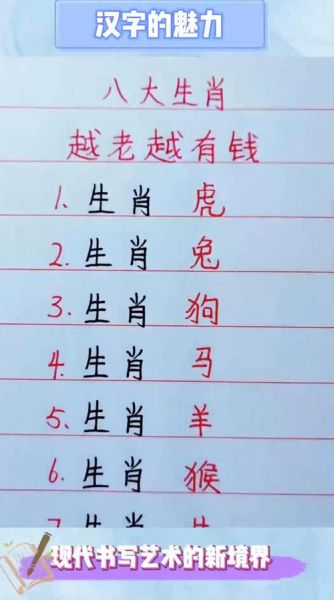 汉字的魅力
八大生肖
越老越有钱
1. 生肖 虎
2. 生肖 兔
3. 生肖 狗
4. 生肖 马
5. 生肖 羊
6. 生肖 猴
现代书写艺术的新境界